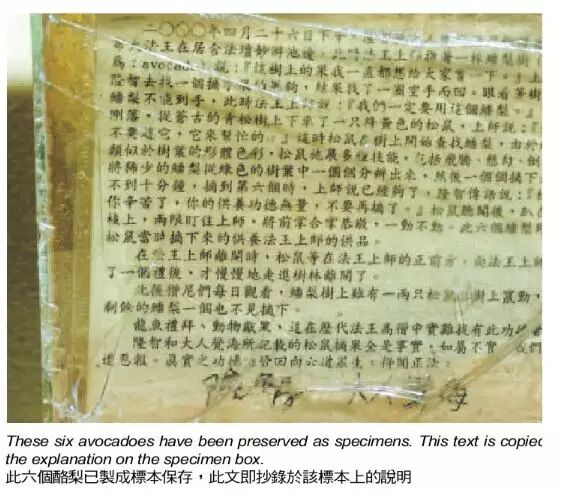 二○○○年四月二十六日下午
大法王在居舍法壇妙游池邊，此時法王上師指著一棵蟠梨樹（
為：avocado）說：『這樹上的果我一直都想給大家嘗一下。』上
隆智去找一個摘了果的鉤，結果找了一圈空手而回。眼看著樹
蟠梨不能到手，此時法王上師說：『我們一定要用這個蟠梨。』
剛落，從蒼古的青松樹上下來了一只絳黃色的松鼠，上師說：『
不要嚇它，它來幫忙的。』這時松鼠在樹上開始查找蟠梨，由於
類似於樹葉的形體色彩，松鼠施展多種技能，包括飛騰、懸勾、倒
將稀少的蟠梨從綠色的樹葉中一個個分辨出來，然後一個個摘下
不到十分鐘，摘到第六個時，上師說已經夠了，隆智傳話說：『
你辛苦了，你的供養功德無量，不要再摘了。』松鼠聽聞後，趴在
枝上，兩眼盯住上師，將前掌合掌恭敬，一動不動。此六個蟠梨即
松鼠當時摘下來的供養法王上師的供品。
在法王上師離開時，松鼠等在法王上師的正前方，向法王上師
了一個禮後，才慢慢地走進樹林離開了。
此後僧尼們每日觀看，蟠梨樹上雖有一兩只松鼠在樹上竄動，
剩餘的蟠梨一個也不見摘下。
龍魚禮拜、動物獻果，這在歷代法王高僧中實難找有此功德者
隆智和大人覺海所記載的松鼠摘果全是事實，如屬不實，我們
遭惡報。真實之功德皆回向六道眾生。得聞正法。
隆智
These six avocadoes have been preserved as specimens. This text is copied
the explanation on the specimen box.
此六個酪梨已製成標本保存，此文即抄錄於該標本上的說明